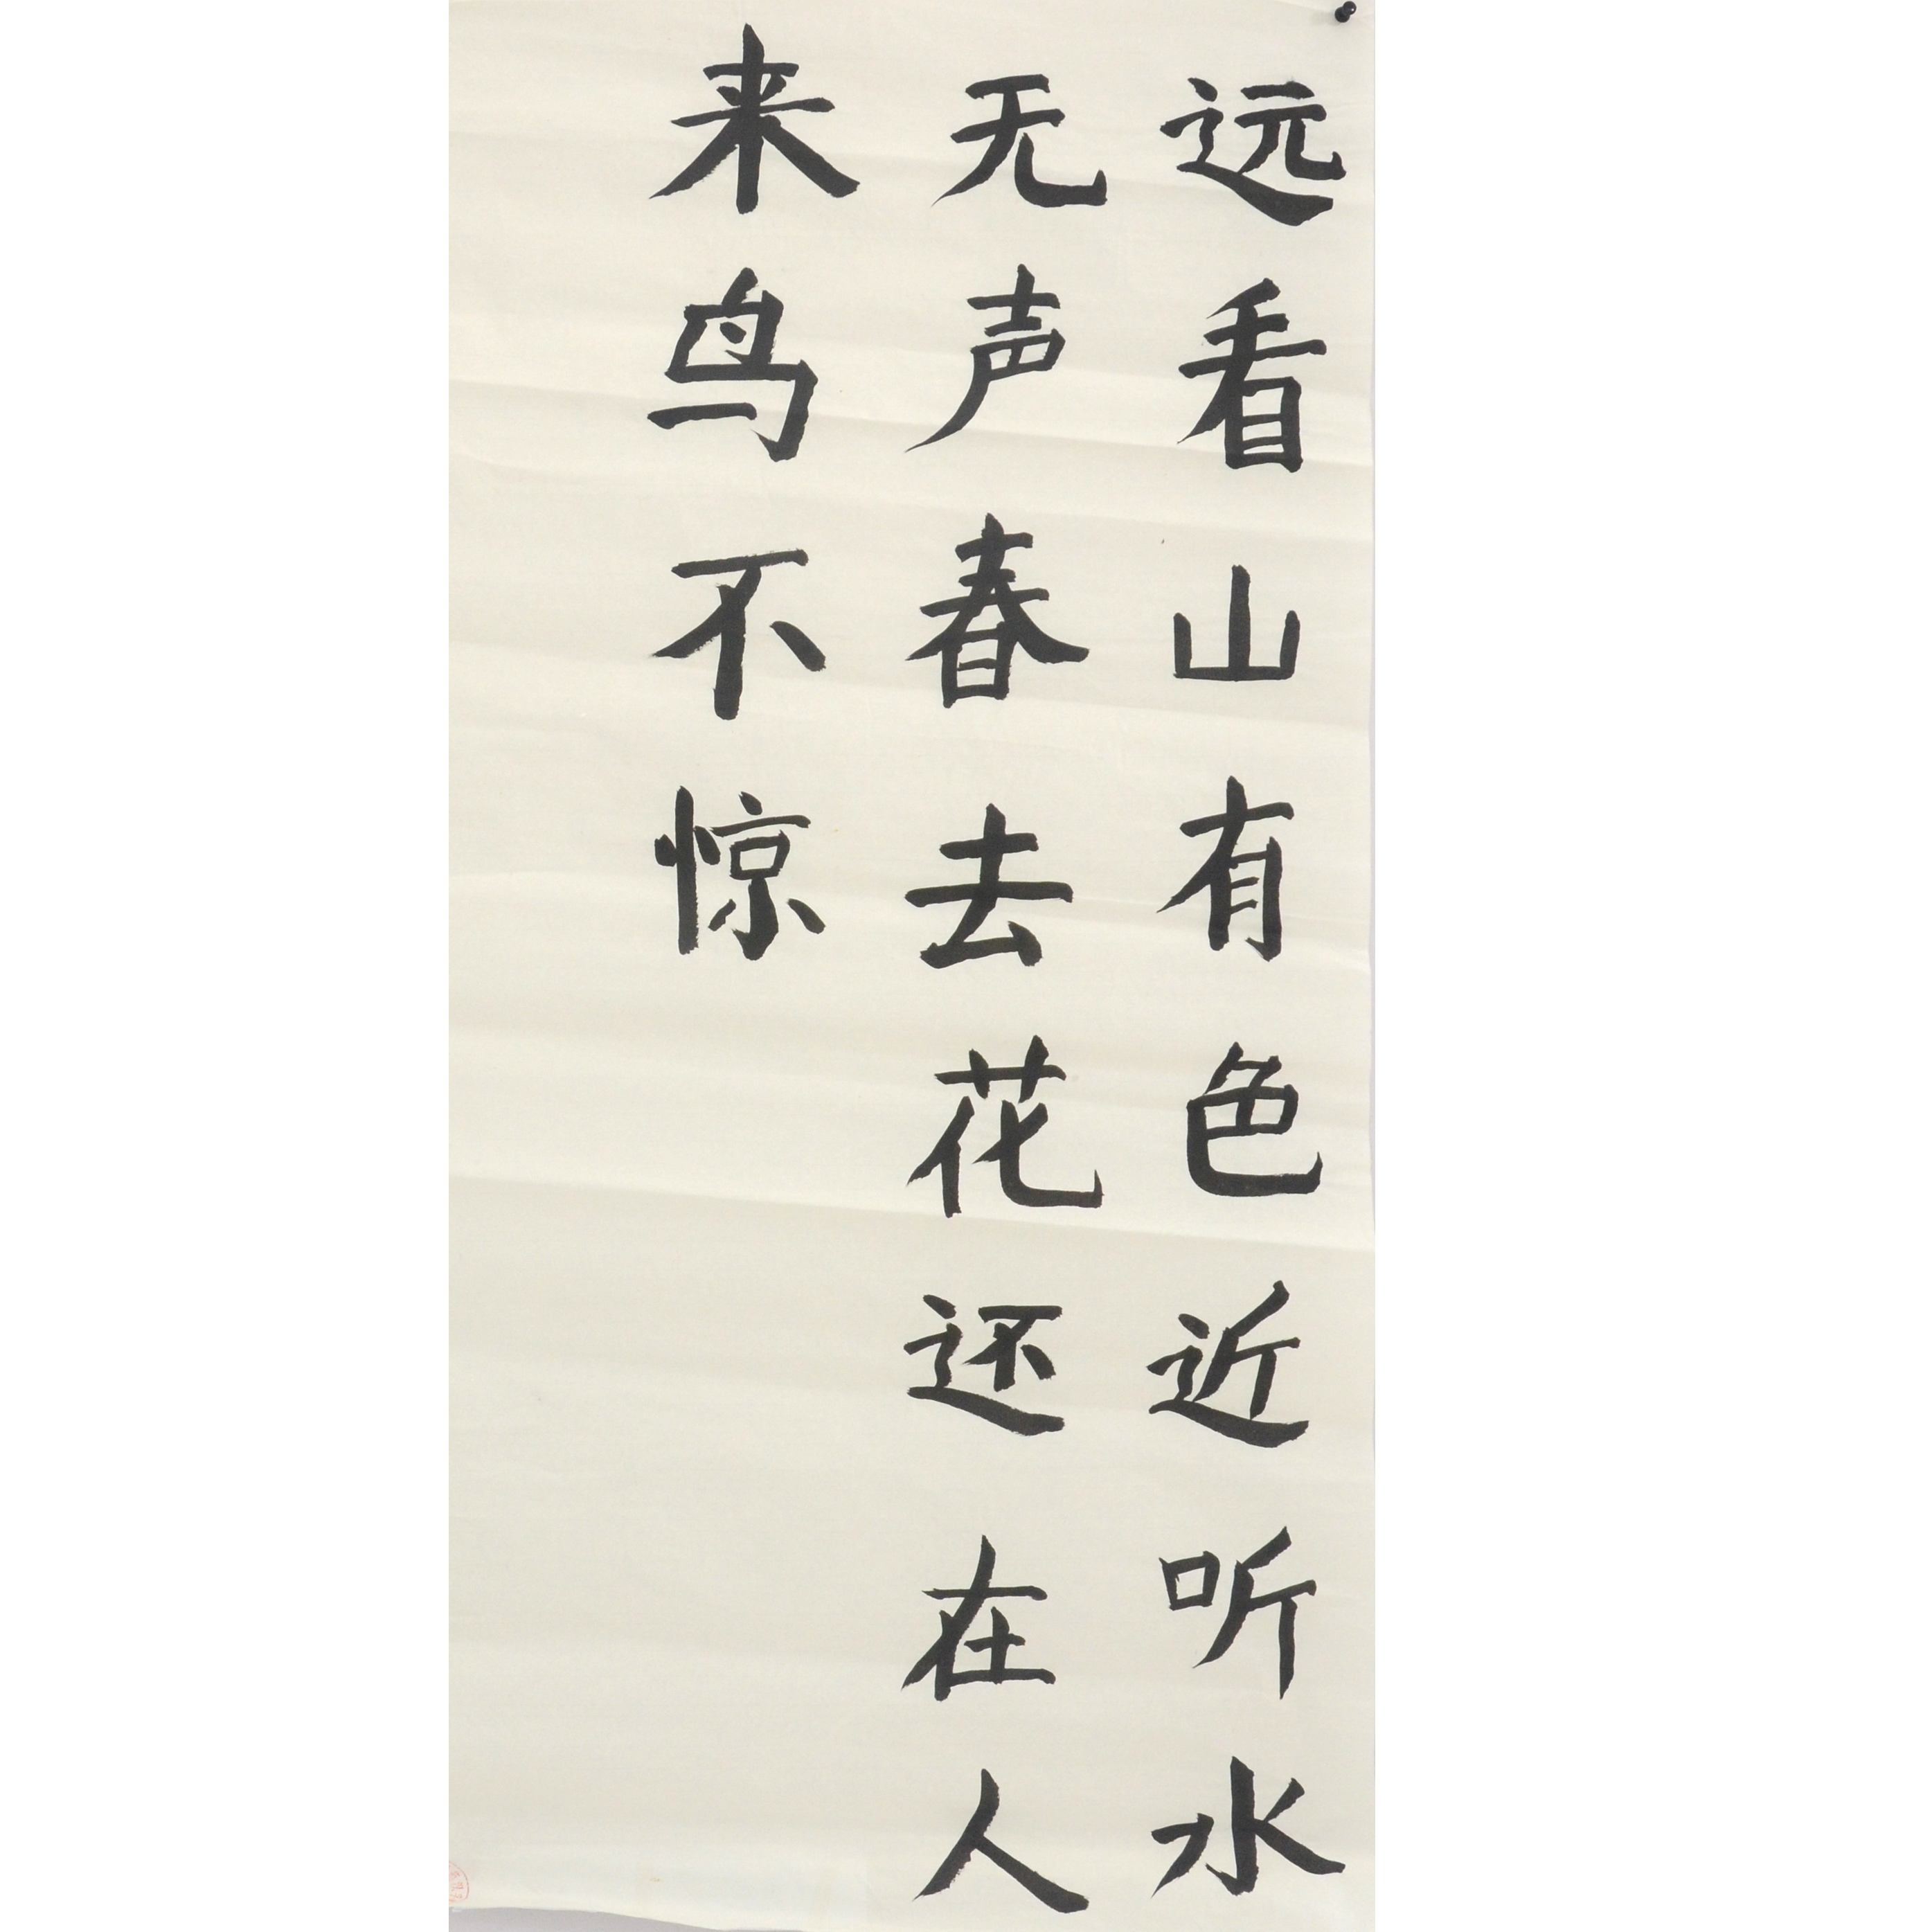 远看山有色近听水
无声春去花还在人
来鸟不惊